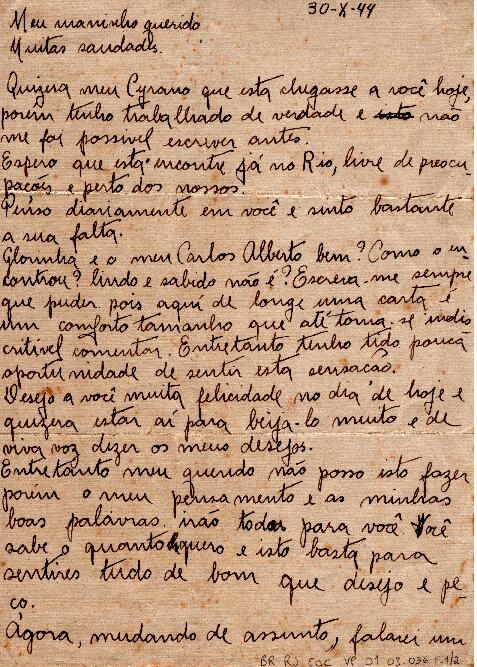 30-X-44
Meu maninho querido
Muitas saudades.
Quizera meu Cyrano que esta chegasse a você hoje,
porém tenho trabalhado de verdade e isto não
me foi possivel escrever antes.
Espero que esta encontre já no Rio, livre de preocu-
pações e perto dos nossos.
Penso diariamente em você e sinto bastante
a sua falta.
Glorinha e o meu Carlos Alberto bem? Como o en
controu? lindo e sabido não é? Escreva-me sempre
que puder pois aqui de longe uma carta é
um conforto tamanho que até torna-se indis
critivel comentar. Entretanto tenho tido pouca
oportunidade de sentir esta sensacão.
Desejo a você muita felicidade no dia de hoje e
quizera estar aí para beija-lo muito e de
viva voz dizer os meus desejos.
Entretanto meu querido não posso isto fazer
porém o meu pensamento e as minhas
boas palavras irão todas para você Você
sabe o quanto quero e isto basta para
sentires tudo de bom que desejo e pe
ço.
Agora, mudando de assunto, falarei um
BR RJ COC VP 01 03.036 f.1/2